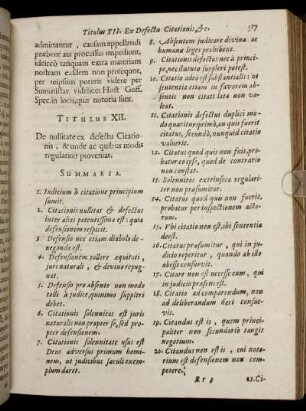 Titulus XII. Ex Defectu Citationis, &c. 317
admittantur, causam appellandi
probent aut processus impediunt,
ideircò tanquam extra materiam
nostram eisdem non prosequar,
per reipsum poteris videre per
Summistas, videlicet Host. Goff.
Spec. in locis, quæ notoria sunt.
TITULUS XII.
De nullitate ex defectu Citatio-
nis, & unde ac quibus modis
regulariter proveniat.
SUMMARIA.
1. Iudicium à citatione principium
sumit.
2. Citationis nullitas & defectus
inter alias potentissima est: quia
defensionem respicit.
3. Defensio nec etiam diabolo de-
neganda est.
4. Defensionem tollere æquitati,
juri naturali, & divino repug-
nat.
5. Defensio pro absente non modo
tolli à judice, quinimo suppleri
debet.
6. Citationis solemnitas est juris
naturalis non propter se, sed prop-
ter defensionem.
7. Citationis solemnitate usus est
Deus adversus primum homi-
nem, ut judicaturis cæteris exem-
plum daret.
8. Absentem judicare divina ac
humana leges prohibent.
9. Citationis defectus nec à princi-
pe, nec statuto suppleri potest.
10. Citatio adeò est substantialis: ut
sententia etiam in favorem ab-
sentis non citati lata non va-
leat.
11. Citationis defectus duplici mo-
do quæritur: primò, an quis fuerit
citatus, secundò, nunquid citatio
valuerit.
12. Citatus quod quis non fuit, pro-
batur eo ipso, quod de contrario
non constat.
13. Solemnitas extrinseca regulari-
ter non præsumitur.
14. Citatus quod quis non fuerit,
probatur per inspectionem acto-
rum.
15. Ubi citatio non est, ibi sententia
deest.
16. Citatus præsumitur, qui in ju-
dicio reperitur, quando ab illo
abesse consuevit.
17. Citare non est necesse eum, qui
in judicio præsens est.
18. Citatio ad comparendum, non
ad deliberandum fieri consue-
vit.
19. Citandus est is, quem princi-
paliter non secundariò tangit
negotium.
20. Citandus non est is, cui noto-
rium est defensionem non com-
petere.
Rr 3 21. Ci-